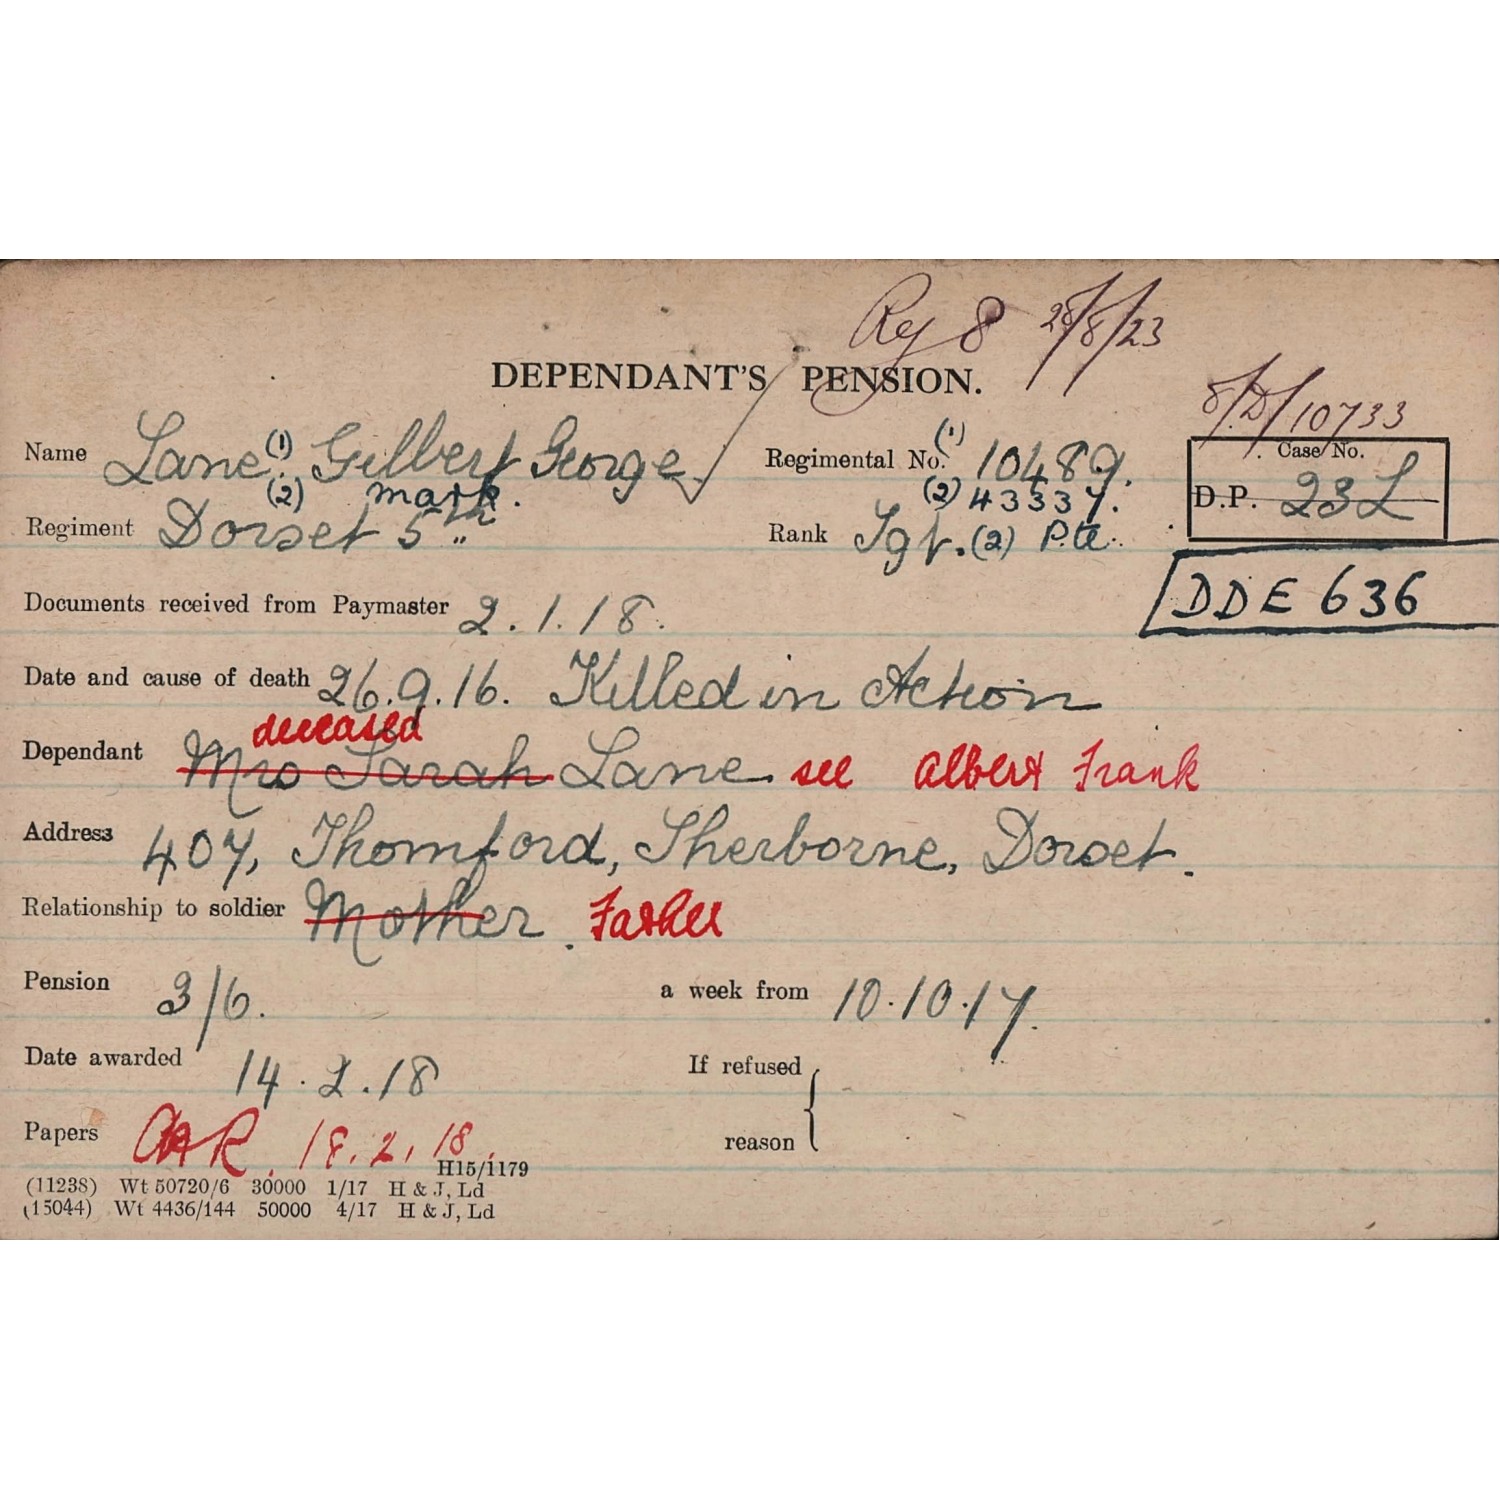 Reg 8 28/8/23
DEPENDANT'S PENSION.
8/D/10733
Name Lane (1) Gilbert George
(2) mark.
Regimental No. (1) 10489.
(2) 43337.
Case No.
D.P. 23L
Regiment Dorset 5th
Rank Sgt. (2) Pte.
DDE 636
Documents received from Paymaster 2.1.18.
Date and cause of death 26.9.16. Killed in Action
deceased
Dependant Mrs Sarah Lane. see Albert Frank
Address 407, Thornford, Sherborne, Dorset.
Relationship to soldier Mother. Father
Pension 3/6. a week from 10.10.17.
Date awarded 14.2.18 If refused
reason
Papers 18.2.18.
H15/1179
(11238) Wt 50720/6 30000 1/17 H & J, Ld
(15044) Wt 4436/144 50000 4/17 H & J, Ld